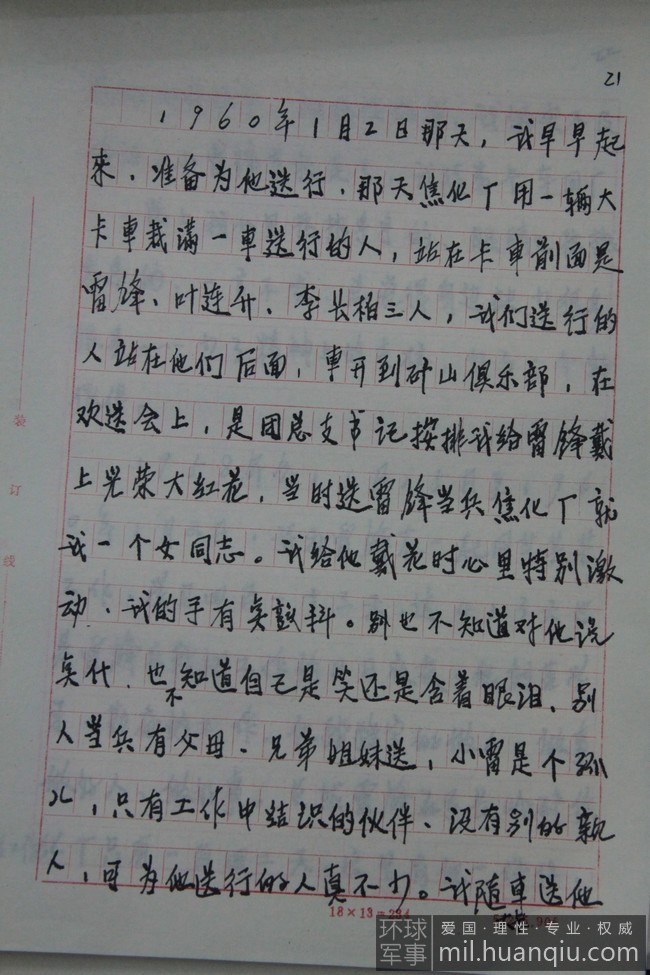 21
1960年1月2日那天，我早早起
来，准备为他送行，那天焦化厂用一辆大
卡車载满一車送行的人，站在卡車前面是
雷锋、叶连升、李长柏三人，我们送行的
人站在他们后面，車开到矿山俱乐部，在
欢送会上，是团总支书记按排我给雷锋戴
上光荣大红花，当时送雷锋当兵焦化厂就
我一个女同志。我给他戴花时心里特别激
动，我的手有奌抖。别也不知道对他说
奌什，也不知道自己是笑还是含着眼泪，别
人当兵有父母、兄弟姐妹送，小雷是个孤
儿，只有工作中结识的伙伴、没有别的親
人，可为他送行的人真不少。我随車送他
18×13=234
装
订
线
环球军事
爱国·理性·专业·权威
mil.huanqiu.com